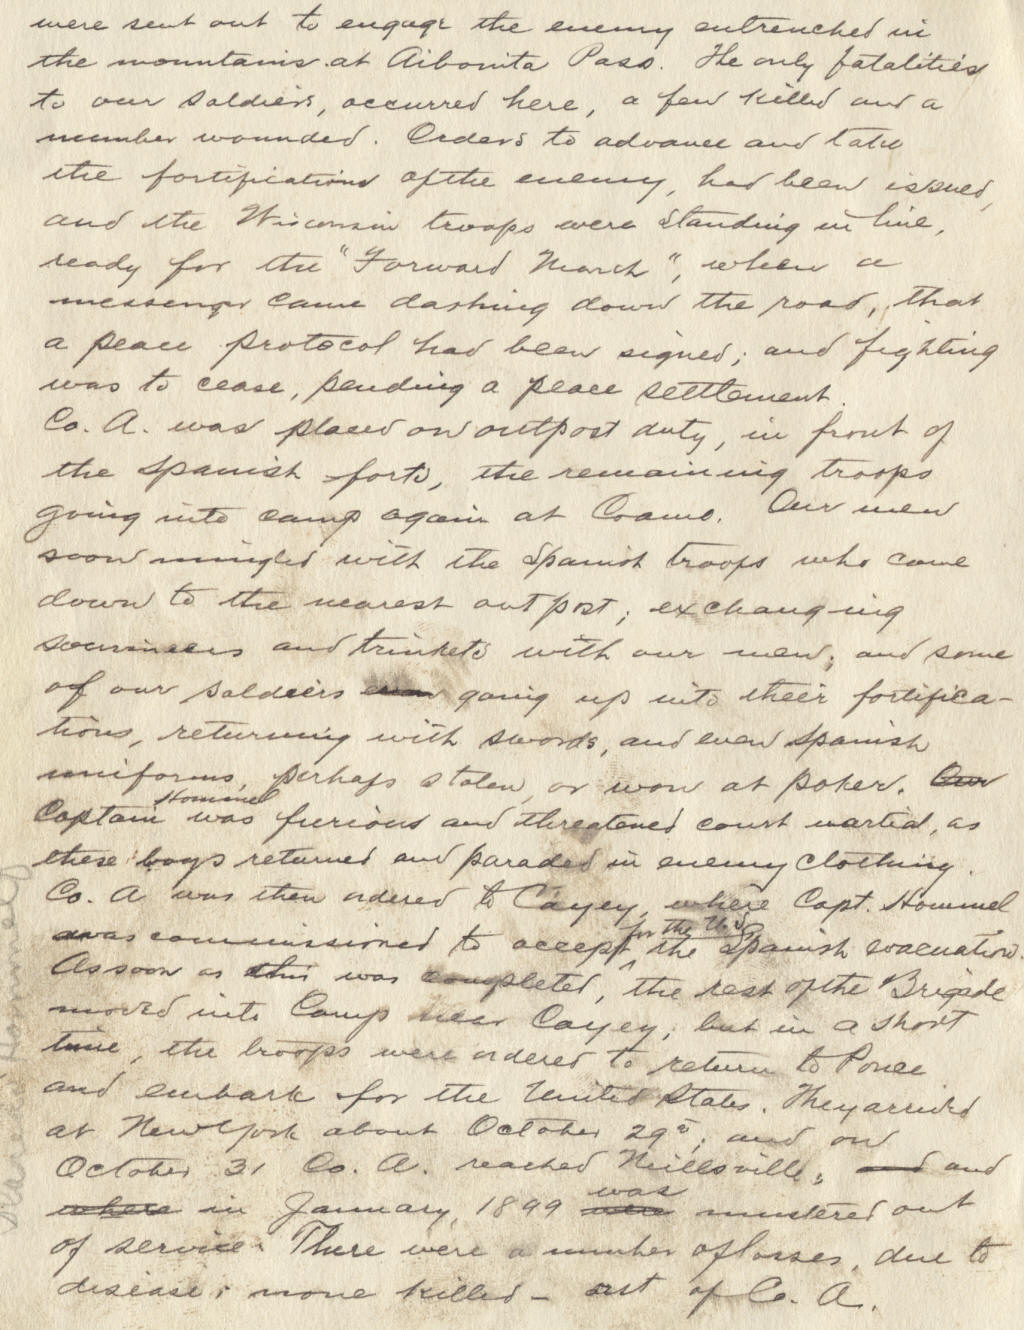 were sent out to engage the enemy entrenched in
the mountains at Aibonita Pass. The only fatalities
to our soldiers, occurred here, a few killed and a
number wounded. Orders to advance and take
the fortifications of the enemy, had been issued,
and the Wisconsin troops were standing in line,
ready for the "Forward March", when a
messenger came dashing down the road, that
a peace protocol had been signed; and fighting
was to cease, pending a peace settlement.
Co. A. was placed on outpost duty, in front of
the Spanish forts, the remaining troops
going into camp again at Coamo. Our men
soon mingled with the Spanish troops who came
down to the nearest outpost; exchanging
souvineers and trinkets with our men; and some
of our soldiers even going up into their fortifica-
tions, returning with swords, and even Spanish
uniforms, perhaps stolen, or won at poker. Our
Hommel
Captain was furious and threatened court martial, as
these boys returned and paraded in enemy clothing.
Co. A was then ordered to Cayey, where Capt. Hommel
for the U.S.
was commissioned to accept the Spanish evacuation.
As soon as this was completed, the rest of the Brigade
moved into Camp near Cayey; but in a short
time, the troops were ordered to return to Ponce
and embark for the United States. They arrived
at New York about October 29th; and on
October 31 Co. A. reached Neillsville; and and
was
where in January, 1899 were mustered out
of service. There were a number of losses, due to
disease; none killed - out of Co. A.